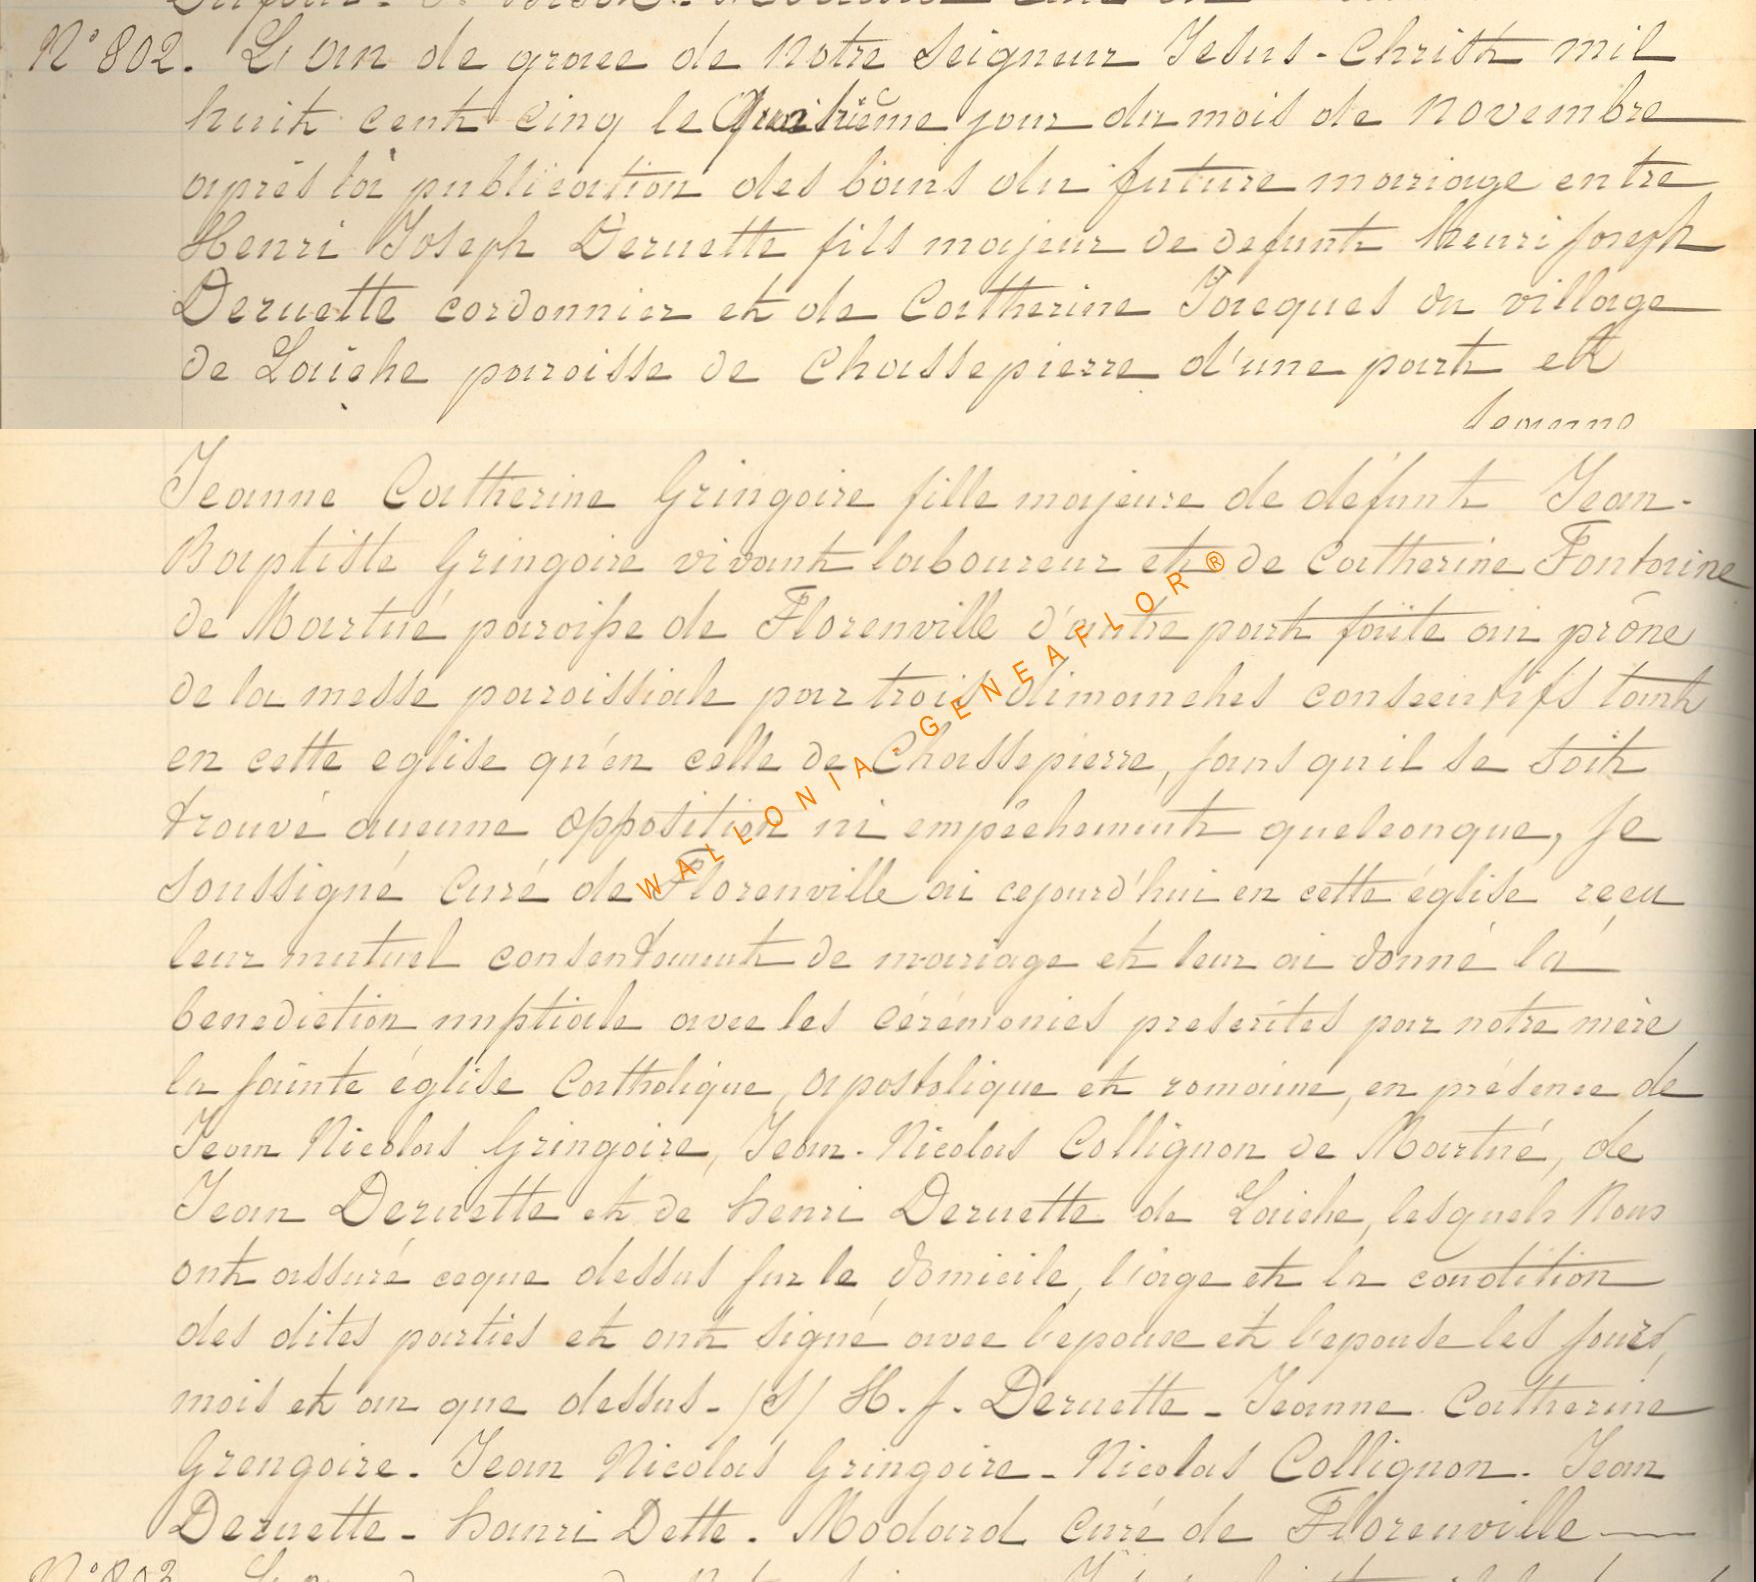 N° 802. L'an de grace de Notre Seigneur Jesus-Christ mil
huit cent cinq le jour du mois de novembre
après là publication des bans du future mariage entre
Henri Joseph Deruette fils majeur de defunt henri joseph
Deruette cordonnier et de Catherine Jacques du village
de Laiche paroisse de Chassepierre d'une part et
Jeanne
Jeanne Catherine Gringoire fille majeure de défunt Jean-
Baptiste Gringoire vivant laboureur et de Catherine Fontaine
de Martué paroisse de Florenville d'autre part faite au prône
de la messe paroissiale par trois dimanches consecutifs tant
en cette eglise qu'en celle de Chassepierre, sans qu'il se soit
trouvé aucune opposition ni empêchement quelconque, je
soussigné curé de Florenville ai cejourd'hui en cette église reçu
leur mutuel consentement de mariage et leur ai donné la
benediction nuptiale avec les cérémonies prescrites par notre mère
la sainte église Catholique, apostolique et romaine, en présence de
Jean Nicolas Gringoire, Jean-Nicolas Collignon de Martué, de
Jean Deruette et de henri Deruette de Laiche, lesquels Nous
ont assuré ceque dessus sur le domicile, l'age et la condition
des dites parties et ont signé avec l'epoux et l'epouse les jours,
mois et an que dessus. /S/ H. J. Deruette - Jeanne Catherine
Grengoire. Jean Nicolas Gringoire - Nicolas Collignon. Jean
Deruette - hanri Dette. Modard curé de Florenville
N° 803
WALLONIA-GENEAFLOR®